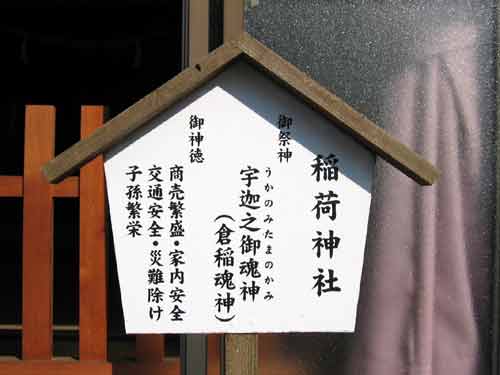 稲荷神社
御祭神
うかのみたまのかみ
宇迦之御魂神
(倉稲魂神)
御神徳
商売繁盛・家内安全
交通安全・災難除け
子孫繁栄